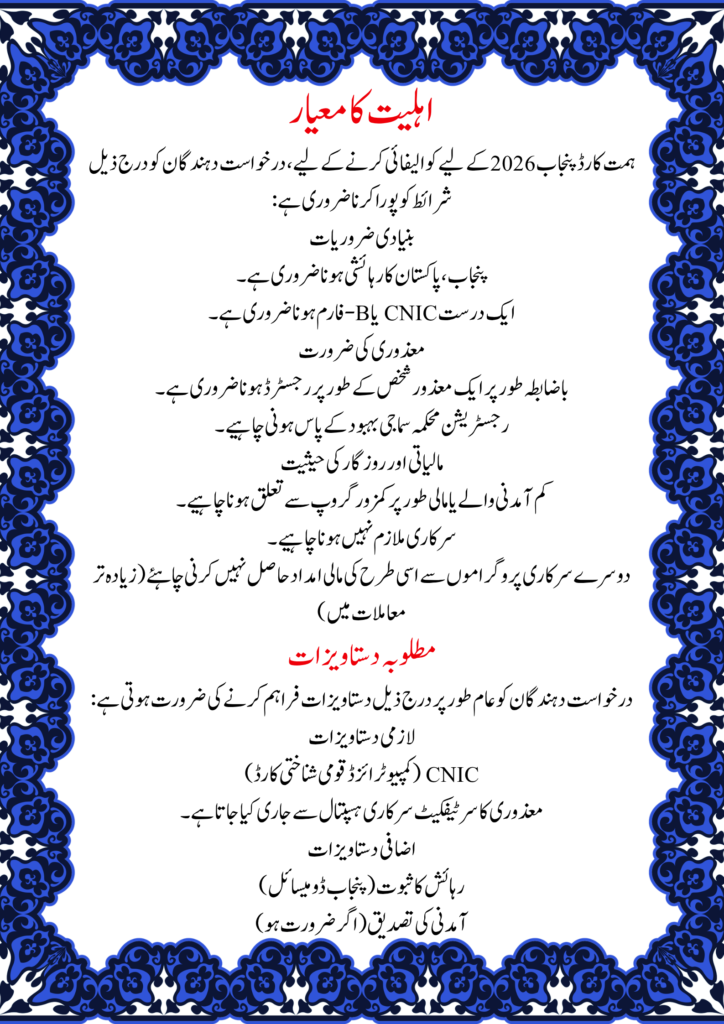 اہلیت کا معیار
ہمت کارڈ پنجاب 2026 کے لیے کوالیفائی کرنے کے لیے، درخواست دہندگان کو درج ذیل
شرائط کو پورا کرنا ضروری ہے:
بنیادی ضروریات
پنجاب، پاکستان کا رہائشی ہونا ضروری ہے۔
ایک درست CNIC یا B-فارم ہونا ضروری ہے۔
معذوری کی ضرورت
باضابطہ طور پر ایک معذور شخص کے طور پر رجسٹرڈ ہونا ضروری ہے۔
رجسٹریشن محکمہ سماجی بہبود کے پاس ہونی چاہیے۔
مالیاتی اور روزگار کی حیثیت
کم آمدنی والے یا مالی طور پر کمزور گروپ سے تعلق ہونا چاہیے۔
سرکاری ملازم نہیں ہونا چاہیے۔
دوسرے سرکاری پروگراموں سے اسی طرح کی مالی امداد حاصل نہیں کرنی چاہئے (زیادہ تر
معاملات میں)
مطلوبہ دستاویزات
درخواست دہندگان کو عام طور پر درج ذیل دستاویزات فراہم کرنے کی ضرورت ہوتی ہے:
لازمی دستاویزات
CNIC (کمپیوٹرائزڈ قومی شناختی کارڈ)
معذوری کا سرٹیفکیٹ سرکاری ہسپتال سے جاری کیا جاتا ہے۔
اضافی دستاویزات
رہائش کا ثبوت (پنجاب ڈومیسائل)
آمدنی کی تصدیق (اگر ضرورت ہو)